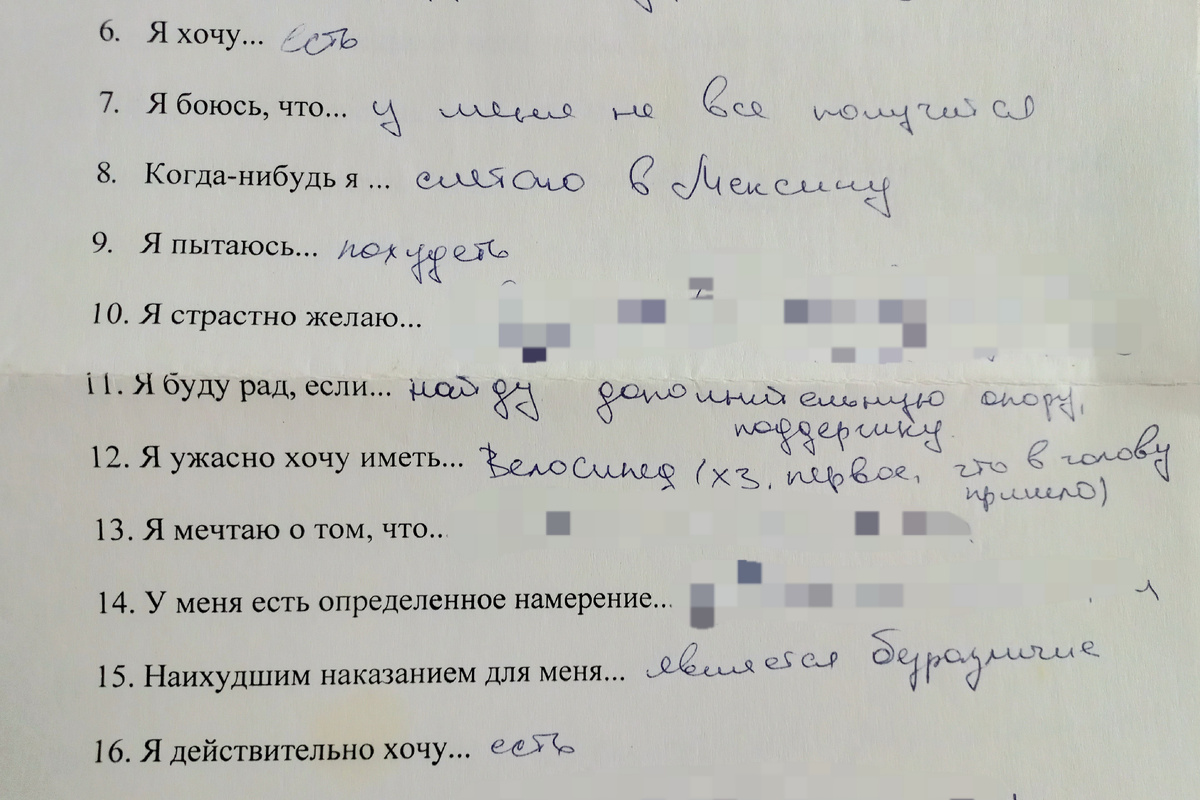 6. Я хочу... есть
7. Я боюсь, что... у меня не все получится
8. Когда-нибудь я ... слетаю в Мексику
9. Я пытаюсь... похудеть
10. Я страстно желаю...
11. Я буду рад, если... найду дополнительную опору,
поддержку.
12. Я ужасно хочу иметь... Велосипед (хз, первое, что в голову
пришло)
13. Я мечтаю о том, что..
14. У меня есть определенное намерение...
15. Наихудшим наказанием для меня... является безразличие
16. Я действительно хочу... есть